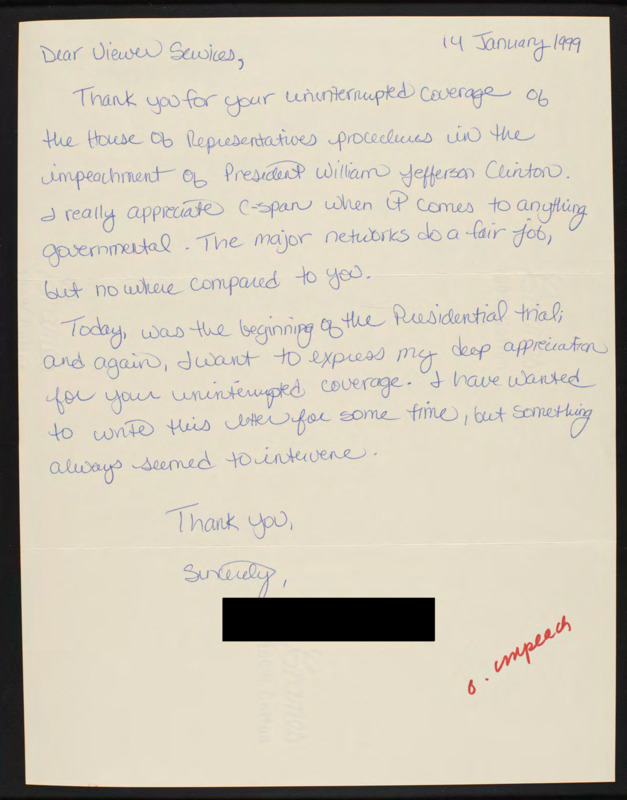 14 January 1999
Dear Viewer Services,
Thank you for your uninterrupted coverage of
the House of Representatives procedures in the
impeachment of President William Jefferson Clinton.
I really appreciate C-span when it comes to anything
governmental. The major networks do a fair job,
but no where compared to you.
Today, was the beginning of the Presidential trial;
and again, I want to express my deep appreciation
for your uninterrupted coverage. I have wanted
to write this letter for some time, but something
always seemed to intervene.
Thank you,
Sincerely,
o. impeach